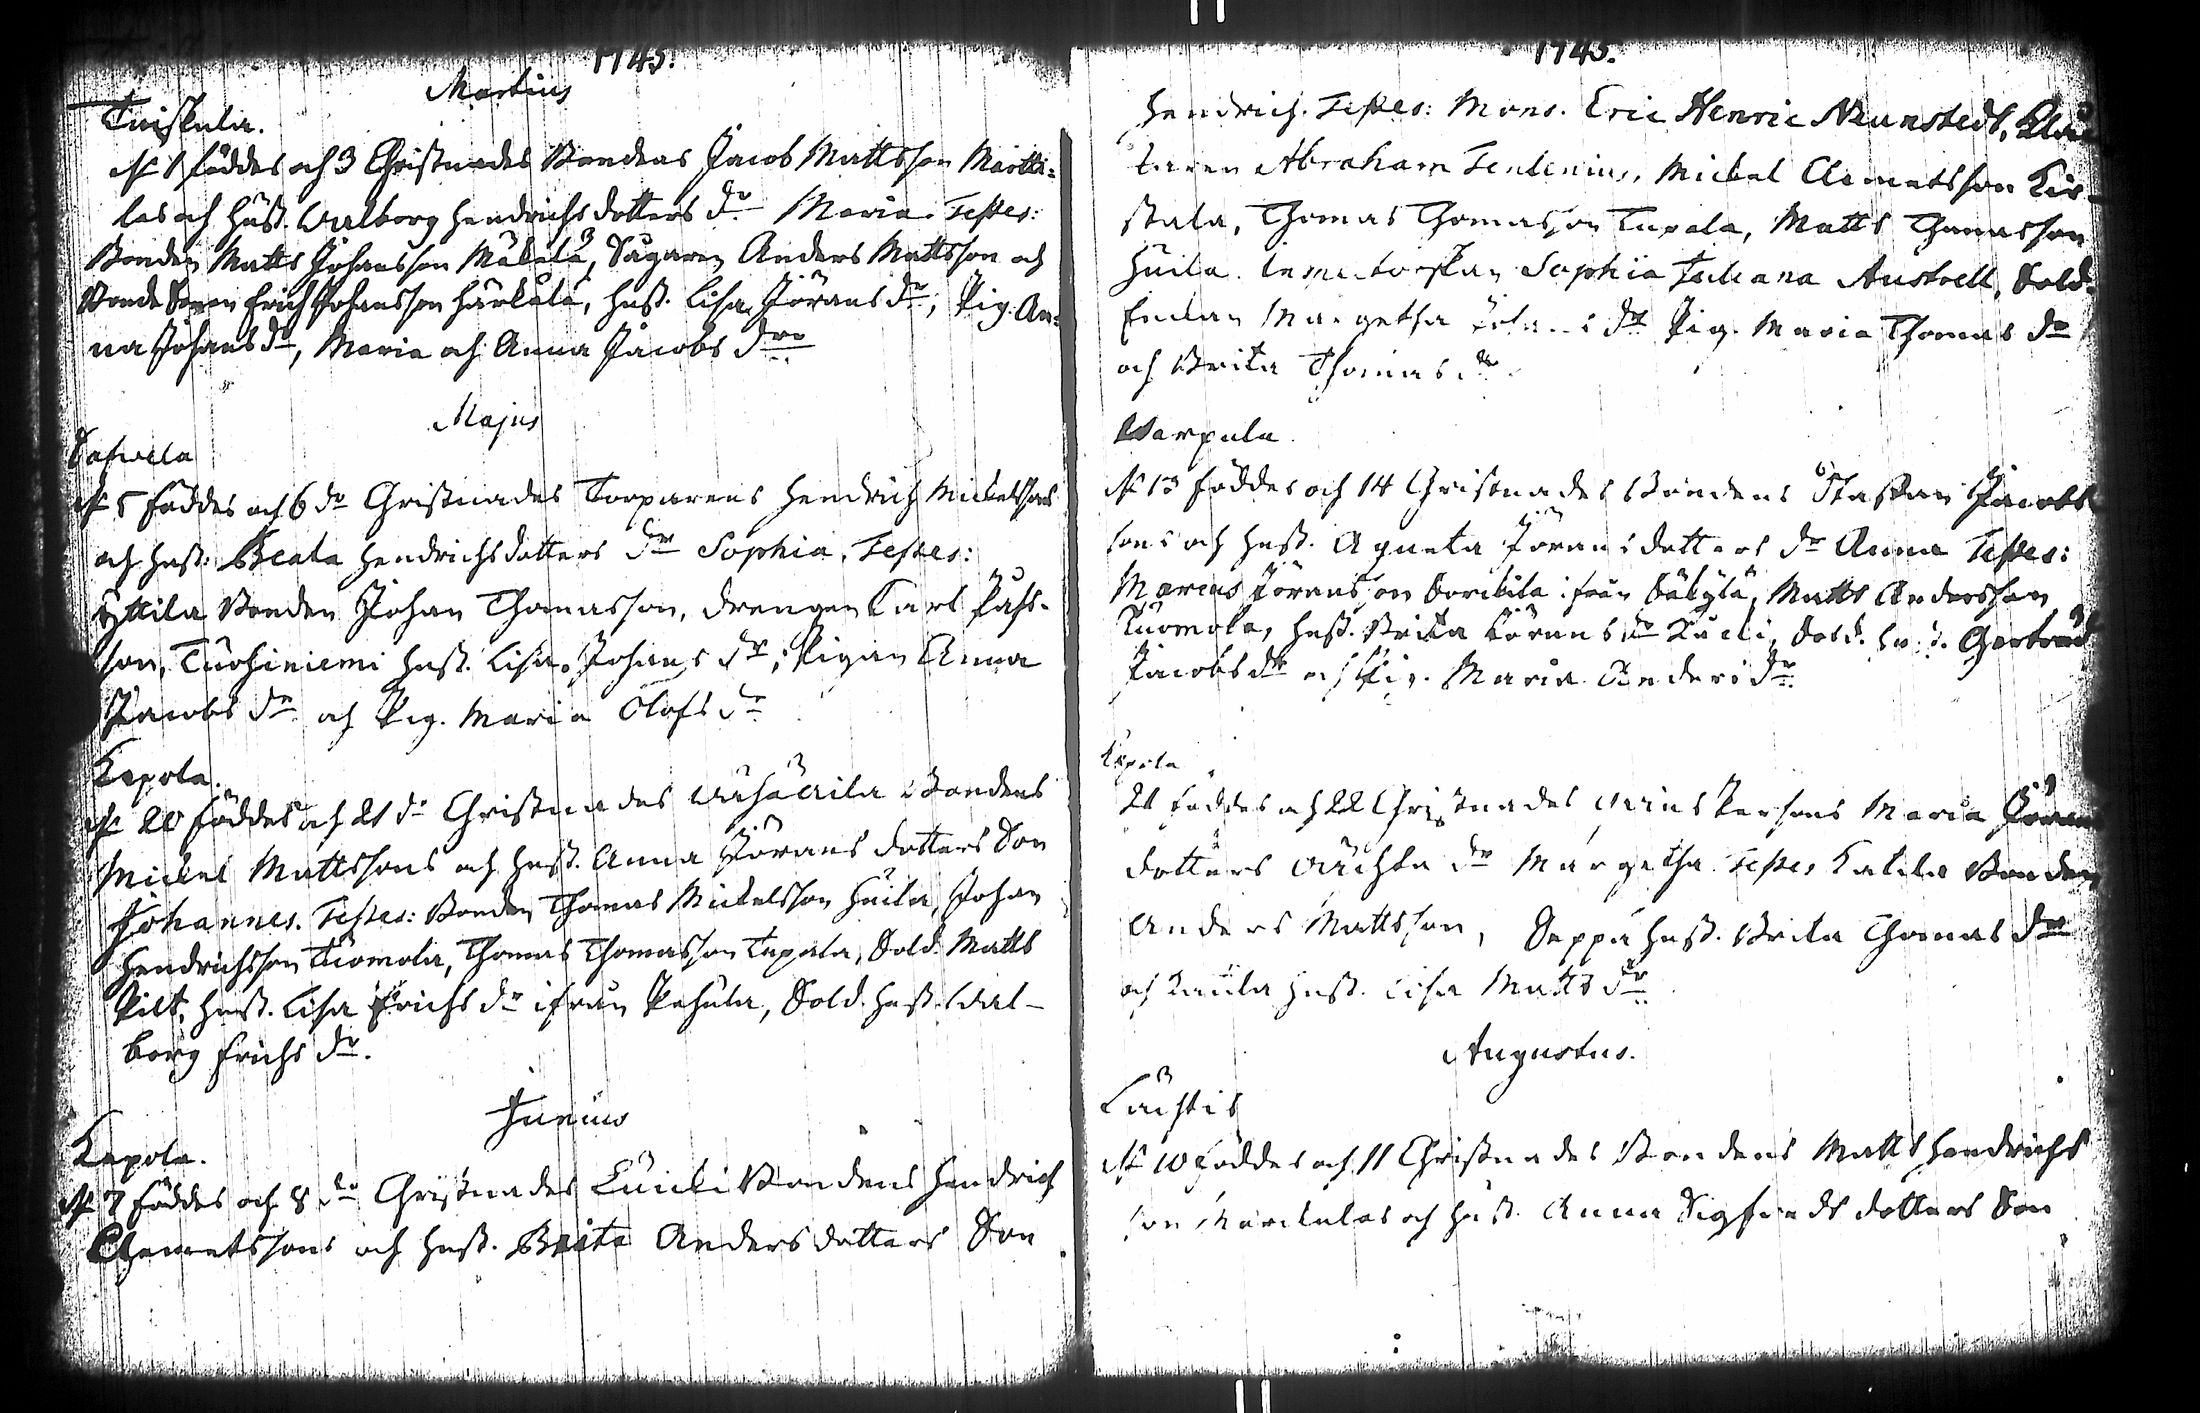 1745.
Martius
Tuiskula.
d. 1 föddes och 3 Christnades Bondens Jacob Mattsson Martti=
las och Hust. Walborg Hendrichsdotters dr Maria. Testes:
Bonden Matts Johansson Mäkelä, Sågaren Anders Mattsson och
Bonde Sonen Erich Johansson Härkälä, Hust. Lisa Jörans dr, Pig. An=
na Johans dr, Maria och Anna Jacobs drr
Majus
d. 5 föddes och 6 dr Christnades Torparens Hendrich Mickelssons
och Hust. Beata Hendrichsdotters dr Sophia. Testes:
Yttila Bonden Johan Thomasson, Drengen Carl Påhls-
son, Tuohiniemi Hust. Lisa Johans dr, Pigan Anna
Jacobs dr och Pig. Maria Olofs dr
Kepola.
d. 20 föddes och 21 dr Christnades Bondens
Mickel Mattssons och Hust. Anna Jörans dotters Son
Johannes. Testes: Bonden Thomas Mickelsson Huila, Johan
Hendrichsson Tuomola, Thomas Thomasson Tupala, Sold. Matts
Pilt, Hust. Lisa Erichs dr ifrån Pehula, Sold. Hust. Wal-
borg Erichs dr.
Junius
Kepola.
d. 7 föddes och 8 dr Christnades Bondens Hendrich
Clemetssons och Hust. Brita Anders dotters Son
1745.
Hendrich. Testes: Mons. Eric Henric Neunstedt,
Abraham Tenlenius, Mickel Clemetsson Kir-
stala, Thomas Thomasson Tupala, Matts Thomasson
Huila. Sophia Juliana Austrell, Sold.
Enkan Margetha dr Pig. Maria Thomas dr
och Brita Thomas dr.
Karpula
d. 13 föddes och 14 Christnades Bondens Staffan Jacobs
sons och Hust. Agneta Jörans dotters dr Anna Testes:
Marcus Jöransson Sorikila ifrån Säkylä, Matts Andersson
Tuomola, Hust. Brita Jörans dr Sold. Hust. Gertrud
Jacobs dr och Pig. Maria Anders dr
Kepola
21 föddes och 22 Christnades Maria Jörans
dotters oächta dr Margetha. Testes Katila Bonden
Anders Mattsson, Seppä Hust. Brita Thomas dr
och Kaula Hust. Lisa Matts dr
Augustus.
d. 10 föddes och 11 Christnades Bondens Matts Hendrichs
son och Hust. Anna Sigfreds dotters Son